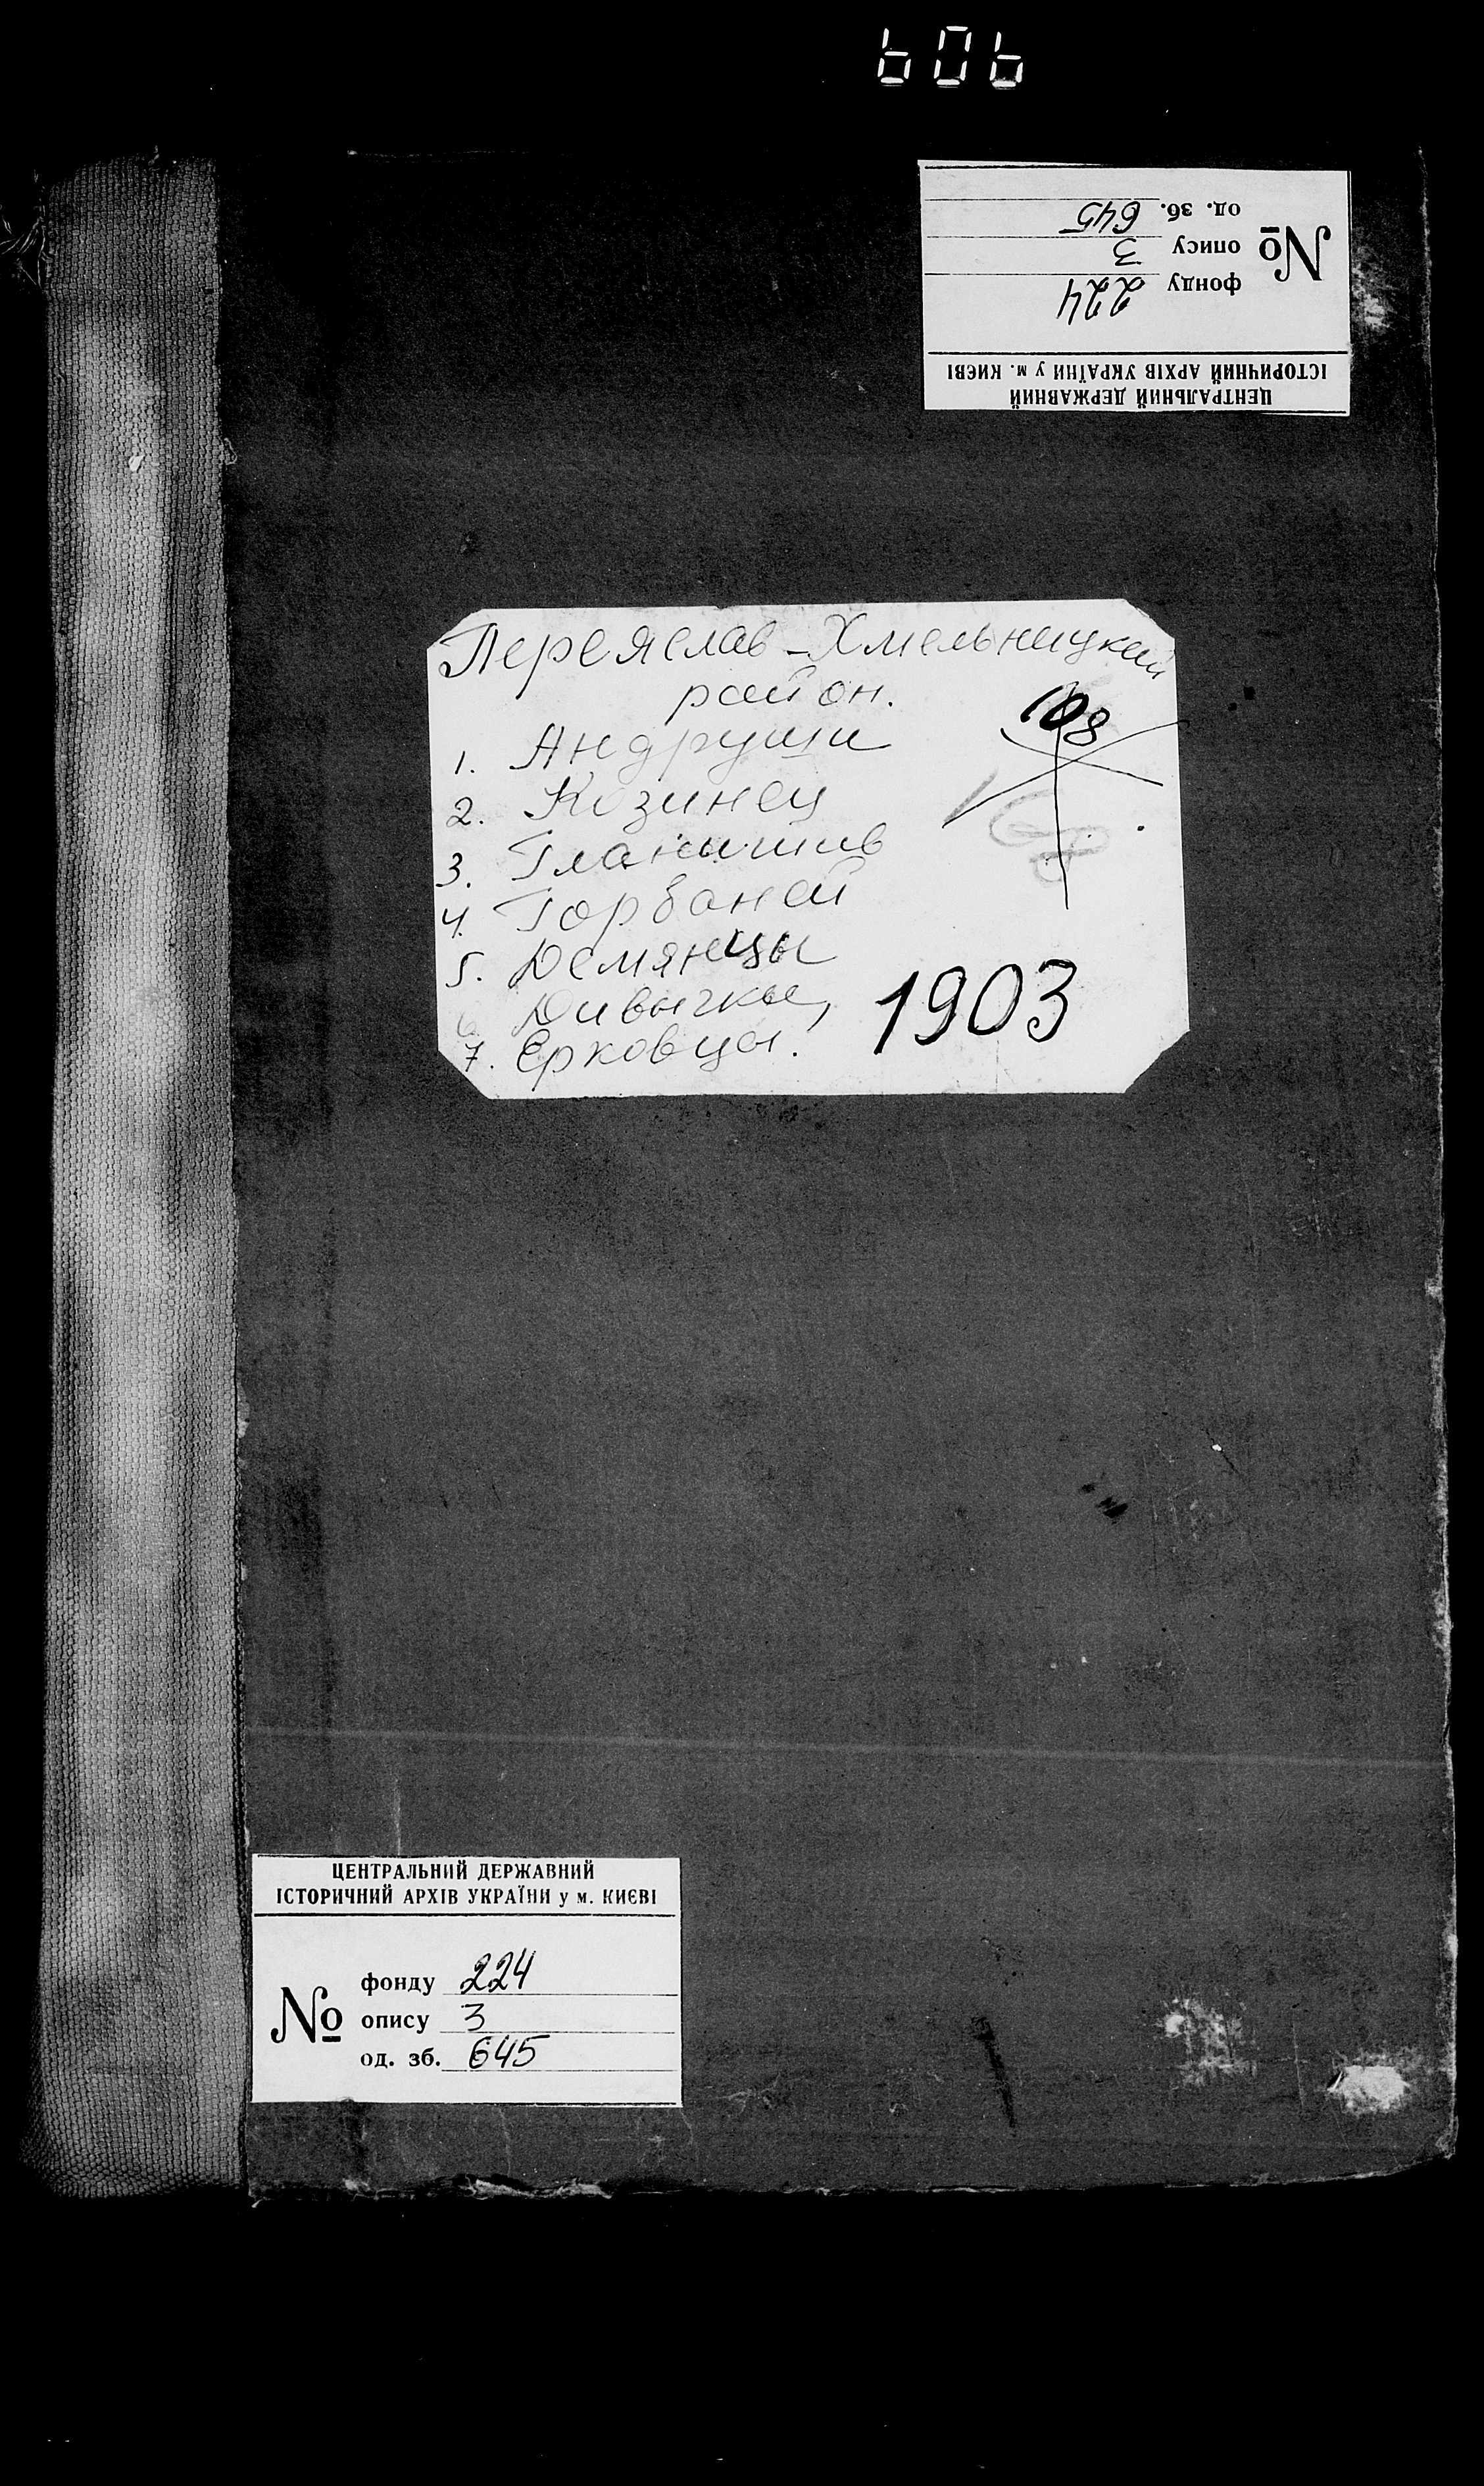 909
ЦЕНТРАЛЬНИЙ ДЕРЖАВНИЙ
ІСТОРИЧНИЙ АРХІВ УКРАЇНИ у м. КИЄВІ
№
фонду 224
опису 3
од. зб. 645
Переяслав-Хмельницкий
район.
108
1. Андруши
2. Козинец
3. Гланишив
4. Горбаней
5. Демянцы
6. Дивычки,
7. Ерковцы.
1903
ЦЕНТРАЛЬНИЙ ДЕРЖАВНИЙ
ІСТОРИЧНИЙ АРХІВ УКРАЇНИ у м. КИЄВІ
№
фонду 224
опису 3
од. зб. 645